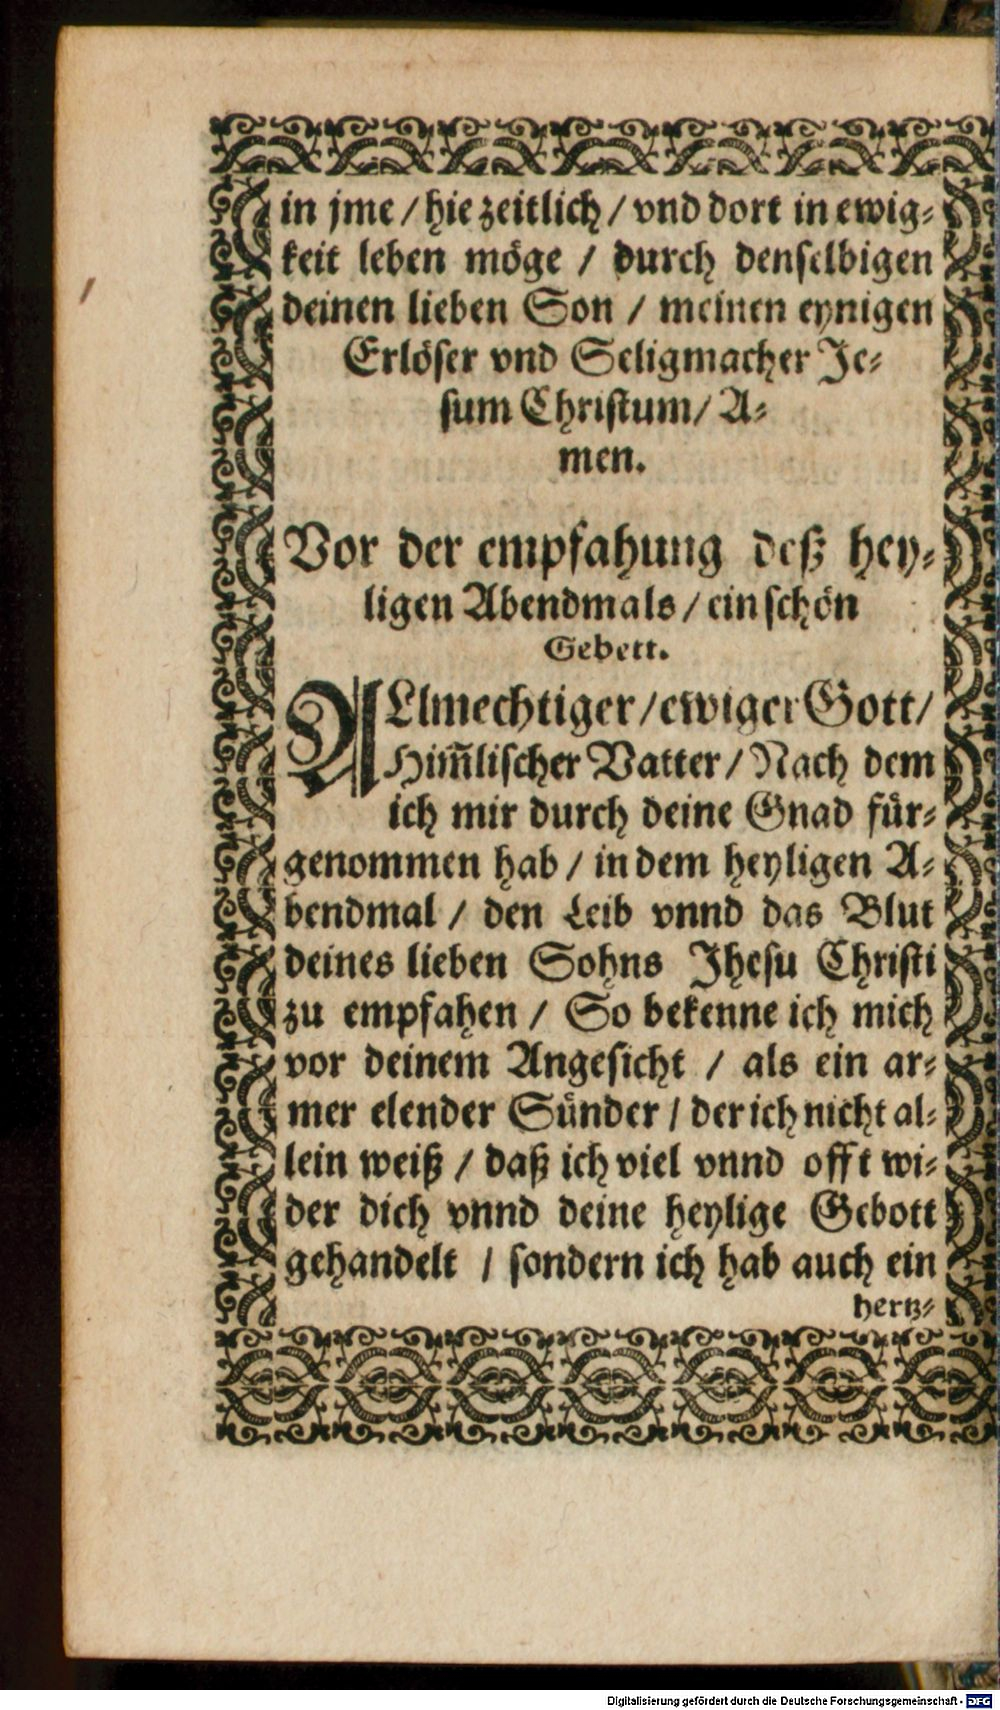 in jme / hie zeitlich / vnd dort in ewig⸗
keit leben möge / durch denselbigen
deinen lieben Son / meinen eynigen
Erlöser vnd Seligmacher Je⸗
sum Christum / A⸗
men.
Vor der empfahung deß hey⸗
ligen Abendmals / ein schön
Gebett.
ALlmechtiger / ewiger Gott /
Him̃lischer Vatter / Nach dem
ich mir durch deine Gnad für⸗
genommen hab / in dem heyligen A⸗
bendmal / den Leib vnnd das Blut
deines lieben Sohns Jhesu Christi
zu empfahen / So bekenne ich mich
vor deinem Angesicht / als ein ar⸗
mer elender Sünder / der ich nicht al⸗
lein weiß / daß ich viel vnnd offt wi⸗
der dich vnnd deine heylige Gebott
gehandelt / sondern ich hab auch ein
hertz⸗
Digitalisierung gefördert durch die Deutsche Forschungsgemeinschaft - DFG